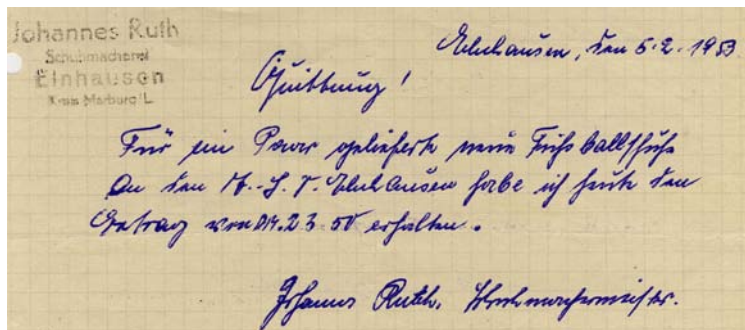 Johannes Ruth
Schuhmacherei
Elnhausen
Kreis Marburg/L.
Elnhausen, den 5.2.1953
Quittung!
Für ein Paar gelieferte neue Fußballschuhe
An den Elnhausen habe ich heute den
Betrag von DM. 23.50 erhalten.
Johannes Ruth, Schuhmachermeister.